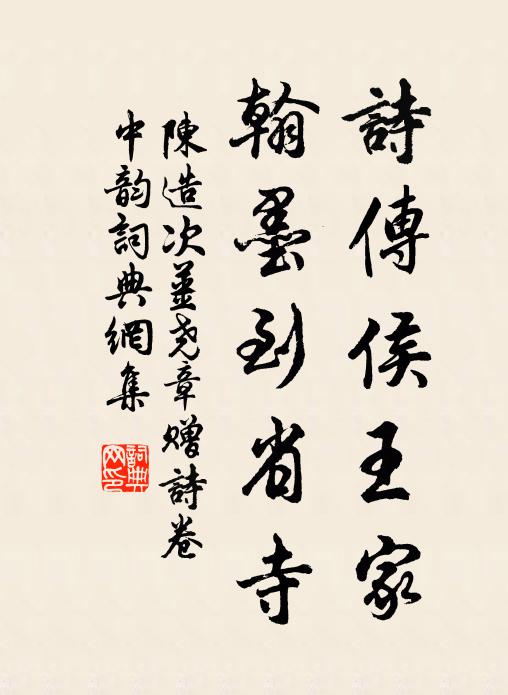 詩傳侯王家
翰墨到省寺
陳造次姜堯章贈詩卷
中韵詞典網集
詞典網印